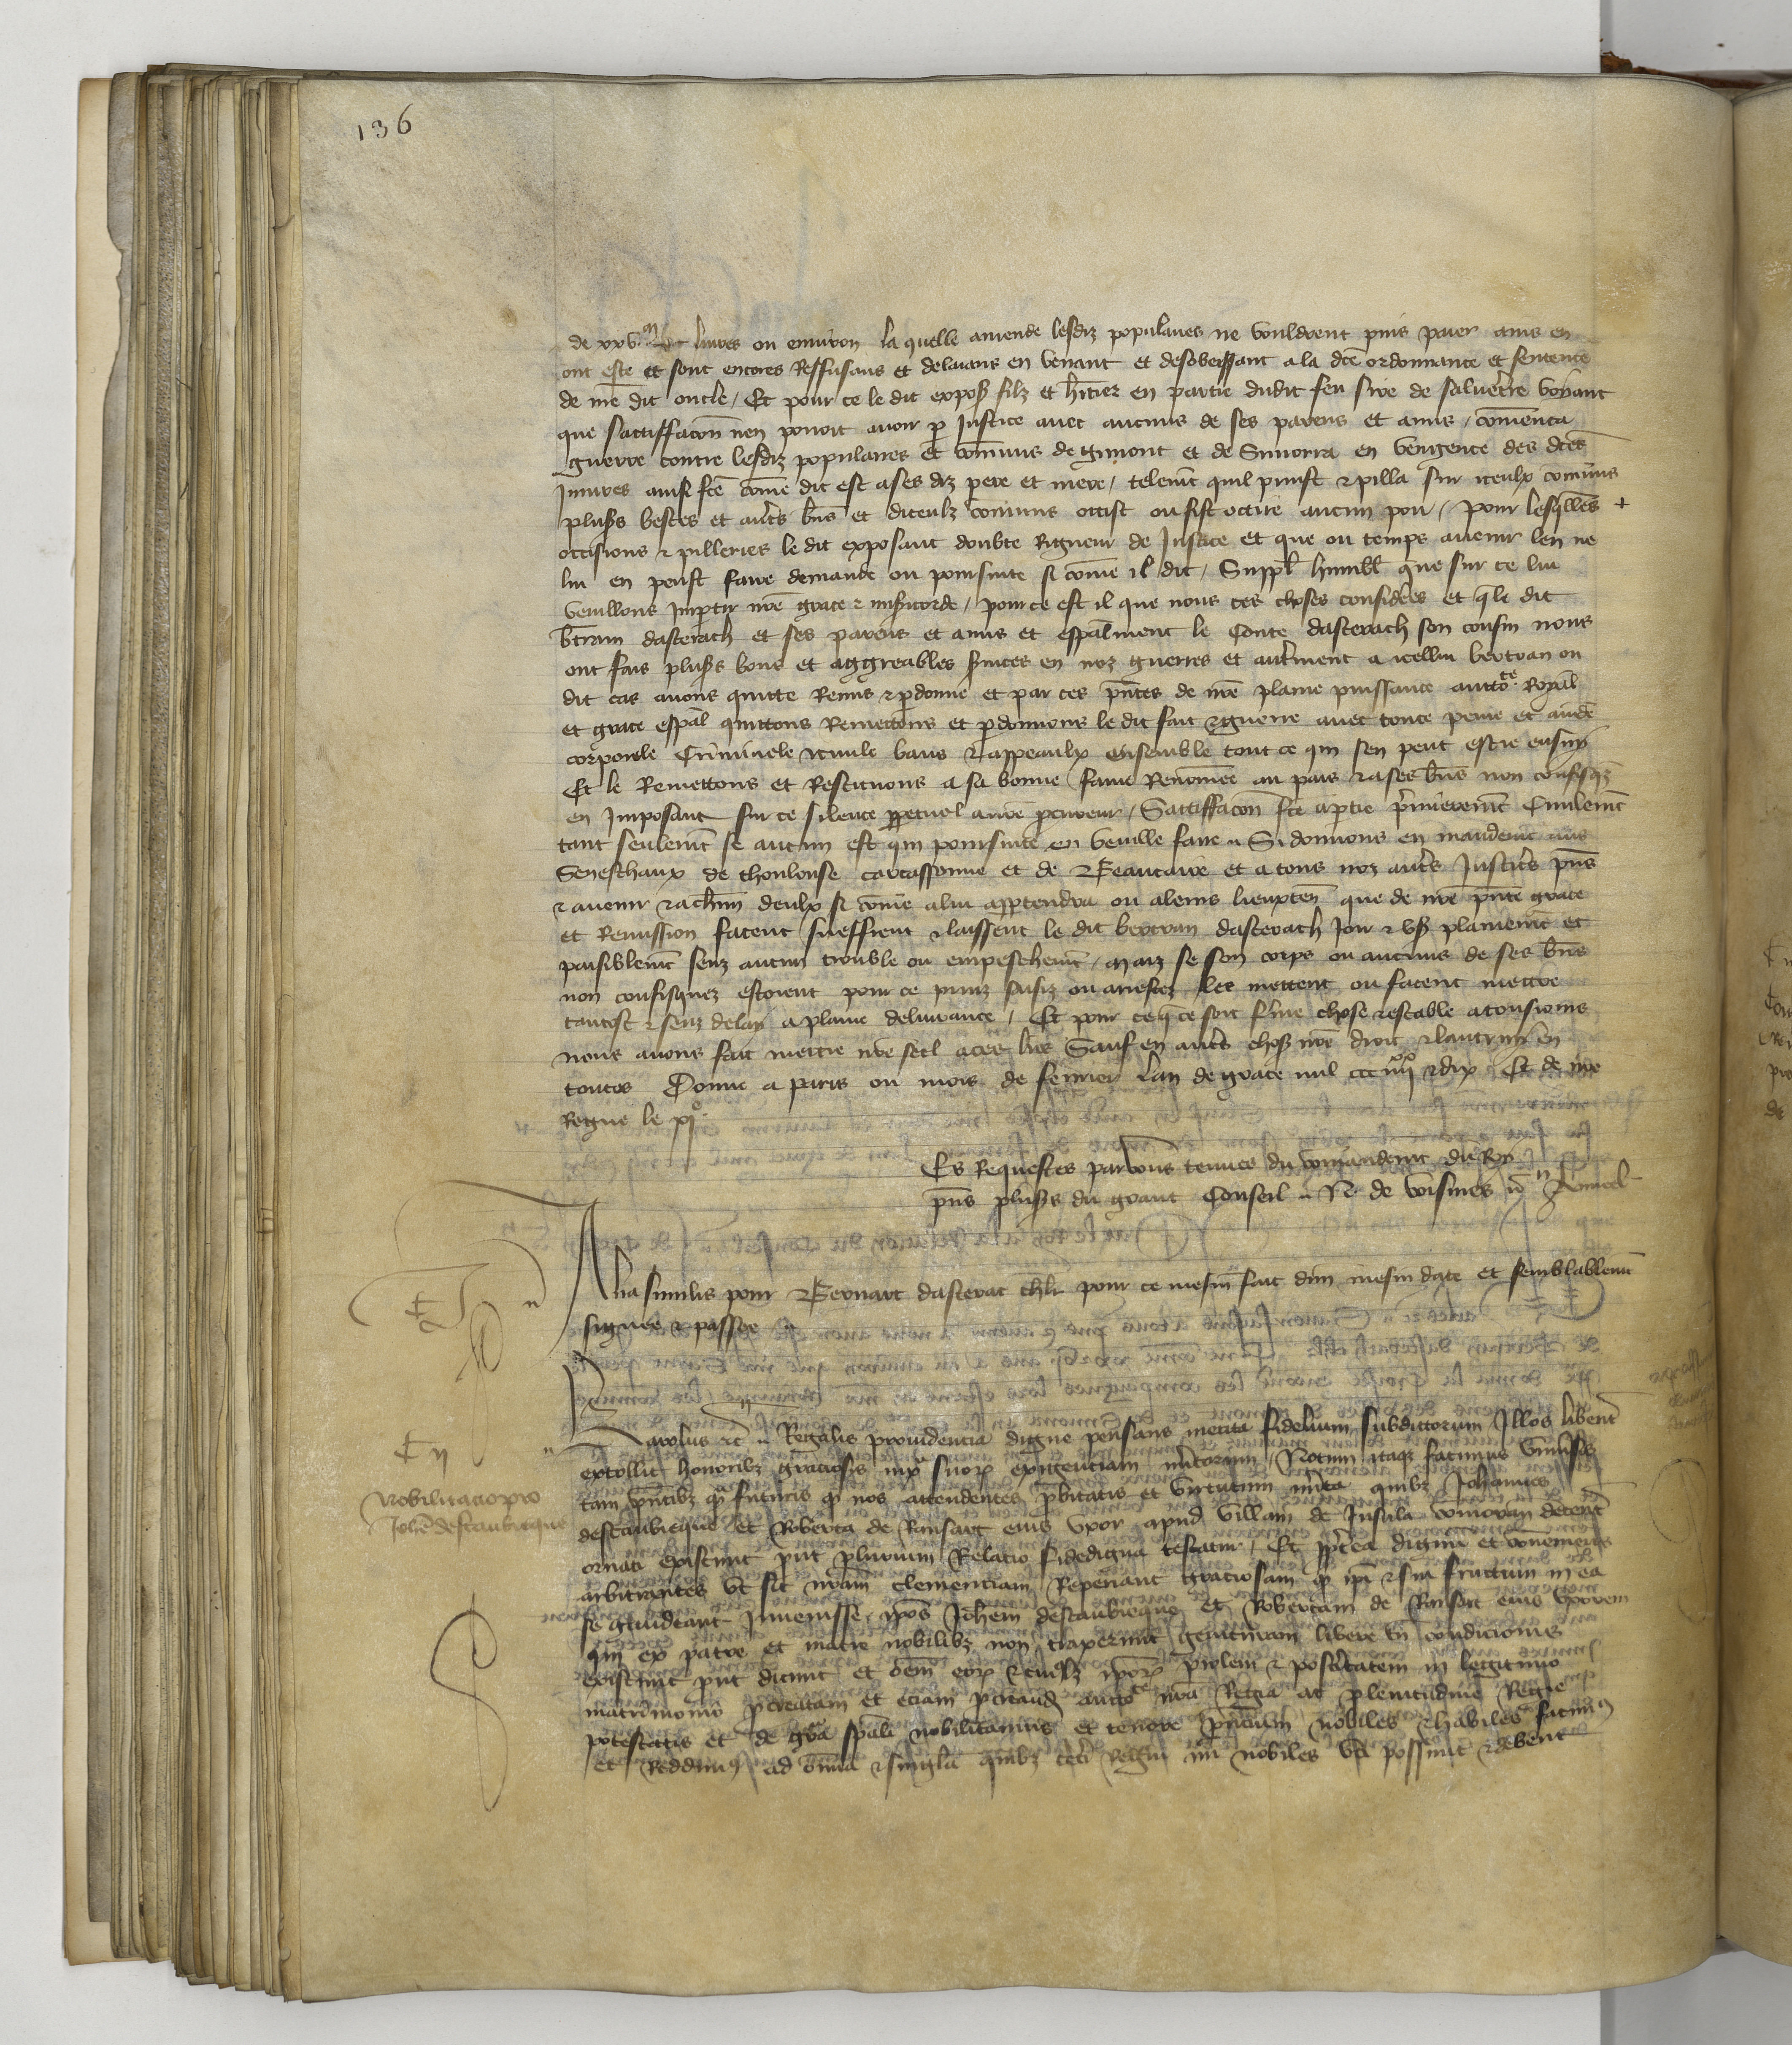 136
de xxv.m livres ou environ la quelle amende lesdiz populaires ne vouldrent puis paier ains en
ont este et sont encores Reffusans et delaians en venant et desobeissant a la dce ordonnance et sentence
de nre dit oncle / Et pour ce le dit expos filz et hitier en partie dudit feu sire de salvetre voyant
que sattiffacon nen povoit avoir p justice avec aucuns de ses parens et amis / comenca
guerre contre lesdiz populaires et comuns de gimont et de Simorra en vengence des dces
Iniures ainsi fce come dit est a ses diz pere et mere / telemt quil prinst & pilla sur iceulx comuns
pluss bestes et autrs bns et diceulx comuns occist ou fist occire aucun pou / pour lesqlles +
occisions & pilleries le dit exposant doubte Rigueur de Justice et que ou temps avenir len ne
lui en peust faire demande ou poursuite si come il dit / Suppl humbl que sur ce lui
veuillons Impartir nre grace & misicorde / pour ce est il que nous ces choses considees et q le dit
btran dasterach et ses parens et amis et espalment le Conte dasterach son cousin nous
ont fais pluss bons et aggreables svices en noz guerres et autrment a icellui bertran ou
dit cas avons quitte Remis & pdonne et par ces pntes de nre plaine puissance auctote Royal
et grace espal quittons Remettons et pdonnons le dit fait & guerre avec toute peine et amde
corporele Criminele & civile bans & appeaulx ensemble tout ce qui sen peut estre ensuy
Et le Remettons et Restituons a sa bonne fame Renomee au pais & a ses bns non confisqz
en Imposant sur ce silence ppetuel a nre pcureur / Sattiffacon fce a ptie pmieremt Civilemt
tant seulemt se aucun est qui poursuite en veuille faire " Si donnons en mandemt aus
Seneschaux de thoulouse carcassonne et de Beaucaire et a tous noz autrs Justiciers pns
& avenir & a chun deulx si come a lui apptendra ou a leurs lieuxten que de nre pnte grace
et Remission facent sueffrent & laissent le dit bertran dasterach Joir & us plainemt et
paisiblemt senz aucun trouble ou empeschemt / maiz se son corps ou aucuns de ses bns
non confisquez estoient pour ce prinz saisiz ou arrestez les mettent ou facent mettre
tantost & senz delay a plaine delivrance / Et pour ce q ce soit ferme chose & estable a tousiours
nous avons fait mettre nre seel a ces lres Sauf en autrs choses nre droit & lautruy en
toutes Donne a paris ou mois de fevrier lan de grace mil ccc iiiixx & dix Et de nre
Regne le xie.
Es Requestes par vous tenues du comandemt du Roy
pns pluss du grant Conseil " N. de voisines
Alia similis pour Bernart dasterac chlr pour ce mesme fait dun mesme date et semblablemt
signee & passee "
Karolus &c " Regalis providencia digne pensans merita fidelium subdittorum Illos libent
extollit honoribz graciosis iuxa suorx exigenciam mitorum / Notum itaqz facimus Univsis
tam pntibz q futuris q nos attendentes pbitatis et virtutum mita quibz Johannes
descaubieque et Roberta de Ransart eius uxor apud villam de Insula comoran decent
ornati existunt put plurium Relatio fidedigna testatur / Et ppea dignum et conveniens
arbitrantes ut sic nram clementiam Reperiant graciosam q ipi & sui fructum in ea
se gaudeant Invenisse ipos Johem descaubieque et Robertam de Ransart eius uxorem
qui ex patre et matre nobilibz non traxerunt genituram libere tn condicionis
existunt put dicunt et oem eorx & cuislz iporx prolem & posteritatem in legitimo
matrimonio pcreatam et eciam pcreand auctote nra Regia ac plenitudine Regie
potestatis et de gra spali nobilitamus et tenore pncium nobiles & habiles facimus
et Reddimus ad omnia & singla quibz ceti Regni nri nobiles uti possunt & debent
Nobilitacio pro
Johe descaubieque